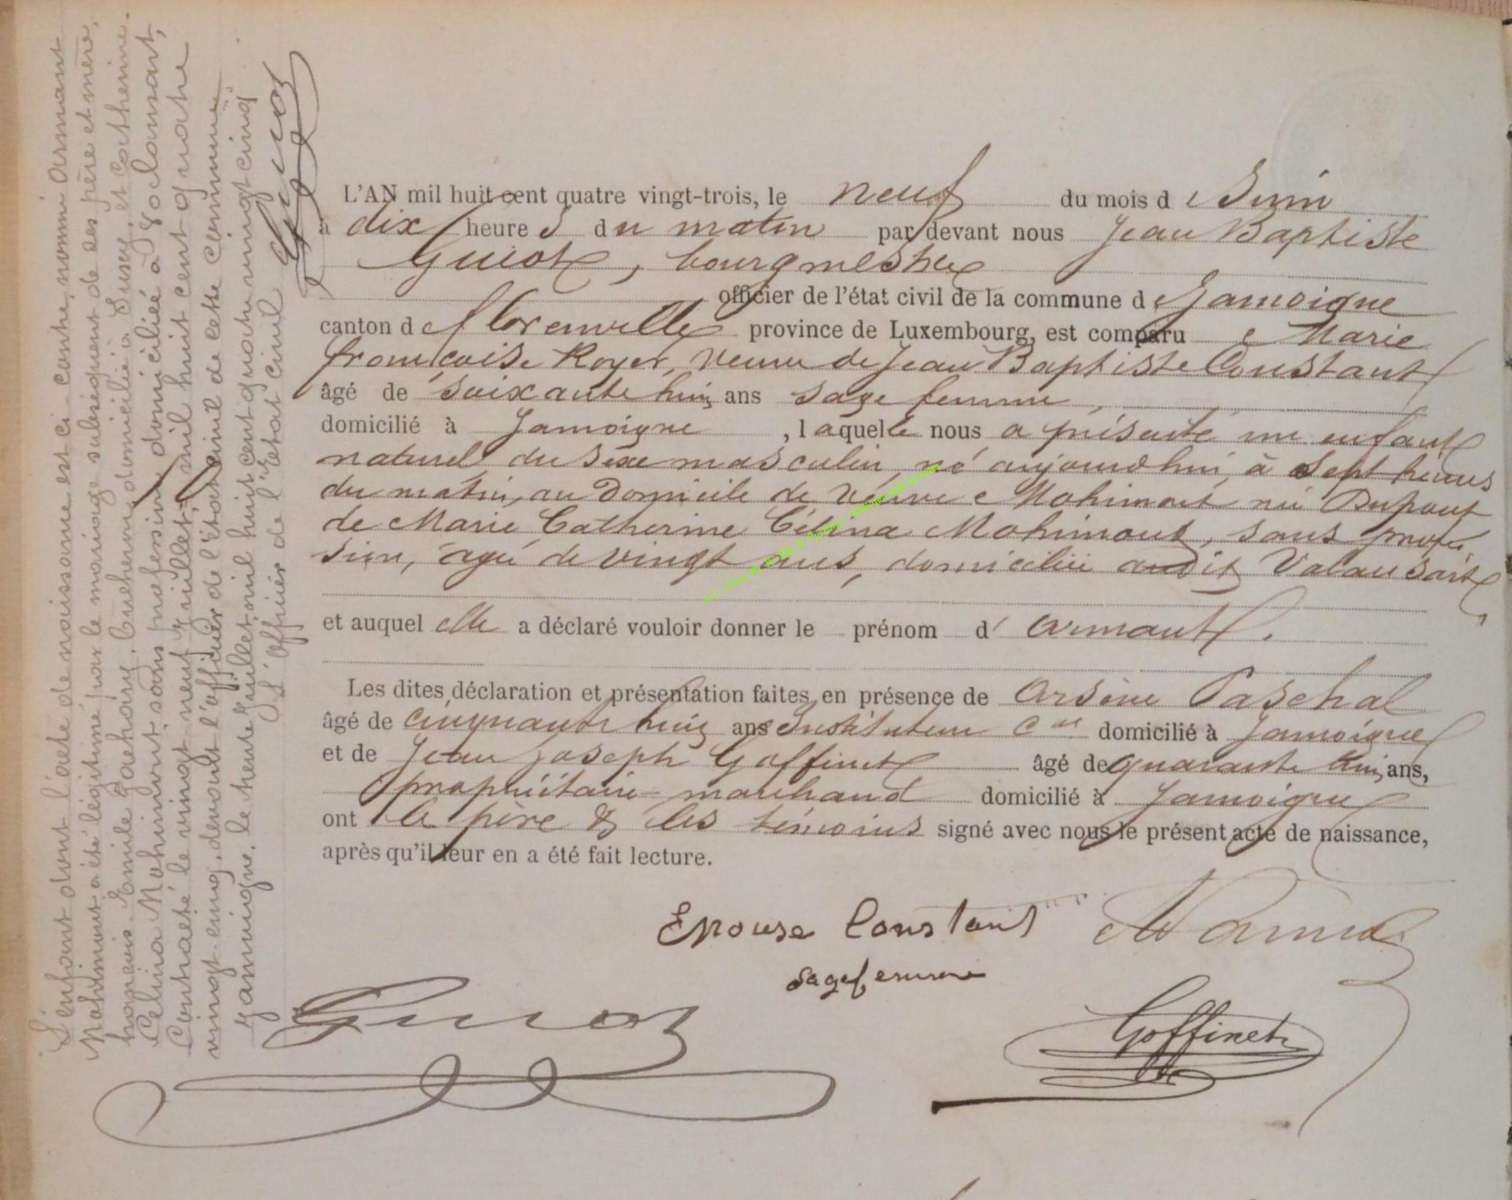 L'AN mil huit cent quatre vingt-trois, le neuf du mois d Juin
à dix heures du matin par devant nous Jean Baptiste
Guiot, bourgmestre
officier de l'état civil de la commune d Jamoigne
canton d Florenville province de Luxembourg, est comparu Marie
francoise Royer, veuve de Jean Baptiste Constant
âgé de soixante huit ans sage femme,
domicilié à Jamoigne, laquelle nous a présenté un enfant
naturel du sexe masculin, né aujourdhui, à sept heures
du matin, au Domicile de Veuve Mohimont née Dupont
de Marie Catherine Célina Mohimont, sans profes
sion, âgée de vingt ans, domiciliée audit Valansart
et auquel elle a déclaré vouloir donner le prénom d' armant.
Les dites déclaration et présentation faites en présence de Arsène Paschal
âgé de cinquante huit ans Instituteur Cal domicilié à Jamoigne
et de Jean Joseph Goffinet âgé de quarante huit ans,
propriétaire marchand domicilié à Jamoigne
ont le père & les témoins signé avec nous le présent acte de naissance,
après qu'il leur en a été fait lecture.
Epouse Constant
sagefemme
Guiot
Goffinet
L'enfant dont l'acte de naissance est ci-contre, nommé Armant
Mohimont a été légitimé par le mariage subséquent de ses père et mère,
Emile domicilié à Suxy, et Catherine
Celina Mohimont, sans profession, domiciliée à Valansart,
Contracté le vingt neuf Juillet mil huit cent quatre
vingt-cinq, devant l'officier de l'état civil de cette commune
Jamoigne, le trente Juillet mil huit cent quatre vingt cinq.
L'officier de l'état civil
Guiot